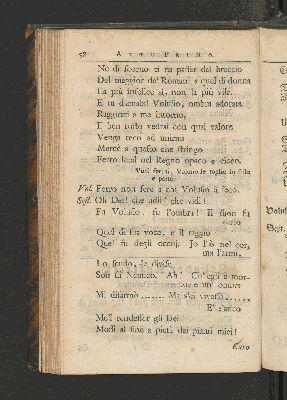 58 ATTO PRIMO.
Nè di scorno ti fia passar dal braccio
Del maggior de' Romani a quel di donna
La più infelice sì, non la più vile.
E tu d'amabil Volusio, ombra adorata
Raggirati a me intorno,
E ben tosto vedrai con qual valore
Venga teco ad unirmi
Mercè a questo che stringo
Ferro letal nel Regno opaco e cieco.
Vuol ferirsi, Volusio le toglie lo stilo
e parte.
Vol. Ferro non fere a chi Volusio è seco.
Sest. Oh Dei! che udii! che vidi!
Fu Volusio? fu l'ombra? Il suon fu
certo
Quel di sua voce, e il raggio
Quel fu degli occhj. Io l'ò nel cor,
ma l'armi,
Lo scudo, le divise,
Son di Nemico. Ah! Ch'egli è mor-
to e un' ombra
Mi disarmò ....... Ma s'ei vivesse .......
E' stanco
Me'l rendesser gli Dei
Mossi al fine a pietà dei pianti miei!
Caro
Volu
Sest.